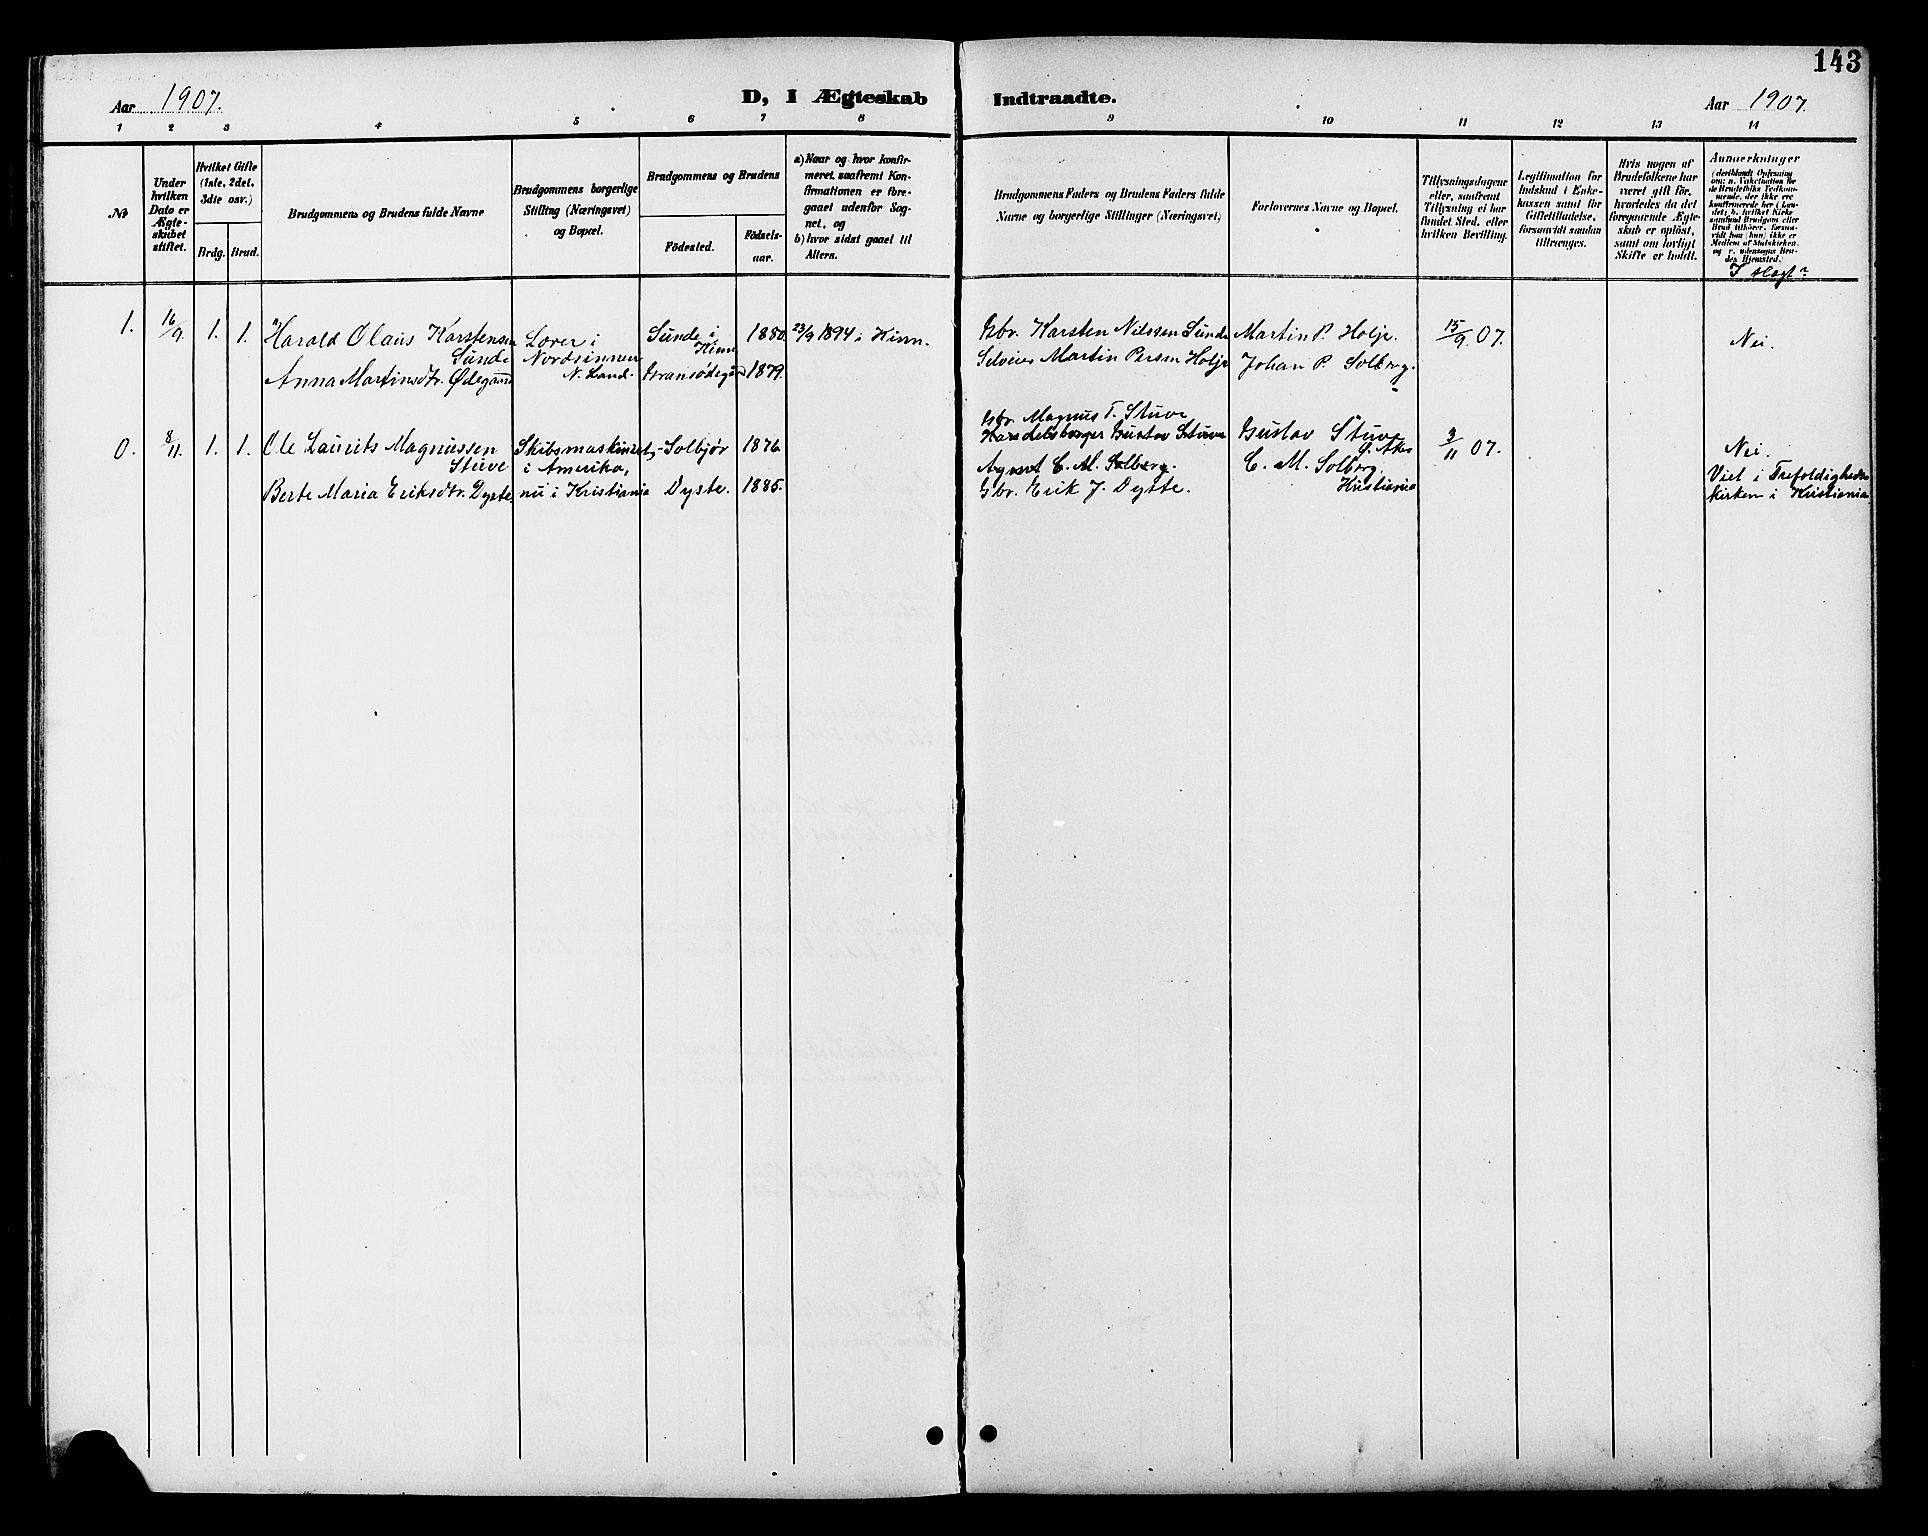 143
Aar 1907.
D, I Ægteskab Indtraadte.
Aar 1907.
1 2 3 4 5 6 7 8 9 10 11 12 13 14
№
Under hvilken Dato er Ægteskabet stiftet.
Hvilket Gifte (1ste, 2det, 3die osv.)
Brdg. Brud.
Brudgommens og Brudens fulde Navne
Brudgommens borgerlige Stilling (Næringsvei) og Bopæl.
Brudgommens og Brudens
Födested.
Födselsaar.
a) Naar og hvor konfirmeret, saafremt Konfirmationen er foregaaet udenfor Sognet, og
b) hvor sidst gaaet til Alters.
Brudgommens Faders og Brudens Faders fulde Navne og borgerlige Stillinger (Næringsvei)
Forlovernes Navne og Bopæl.
Tillysningsdagene eller, saafremt Tillysning ei har fundet Sted, eller hvilken Bevilling.
Legitimation for Indskud i Enkekassen samt for Giftetilladelse, forsaavidt saadan tiltrænges.
Hvis nogen af Brudefolkene har været gift før, hvorledes da det foregaaende Ægteskab er oplöst, samt om lovligt Skifte er holdt.
Anmærkninger (deriblandt Oplysning om: a. Vakcination for de Brudefolks Vedkommende, der ikke ere konfirmerede her i Landet; b. hvilket Kirkesamfund Brudgom eller Brud tilhörer, forsaavidt han (hun) ikke er Medlem af Statskirken, og c. udensogns Brudes Hjemsted.
I Slegt?
1. 16/9. 1. 1. Harald Olaus Karstensen Sunde
Lærer i Nordsinnen N. Land.
Sunde i Kinn 1880. 23/9 1894 i Kinn.
Gbr. Karsten Nilssen Sunde
Martin P. Holje.
15/9 07.
Nei.
Anna Martinsdtr. Ødegaard
1879.
Selveier Martin Persen Holje
Johan P. Solberg.
0. 8/11. 1. 1. Ole Laurits Magnussen Stuve
Skibsmaskinist, i Amerika, nu i Kristiania
Solbjør 1876
Gbr. Magnus T. Stuve
Haradelsborger Gustav Stuve
Gustav Stuve
Ø. Aker
3/11 07.
Nei.
Agent C. M. Solberg.
C. M. Solberg. Kristiania
Viet i Trefoldigheds
kirken i Kristiania
Berte Maria Eriksdtr. Dyste,
Dyste. 1885.
Gbr. Erik J. Dyste.